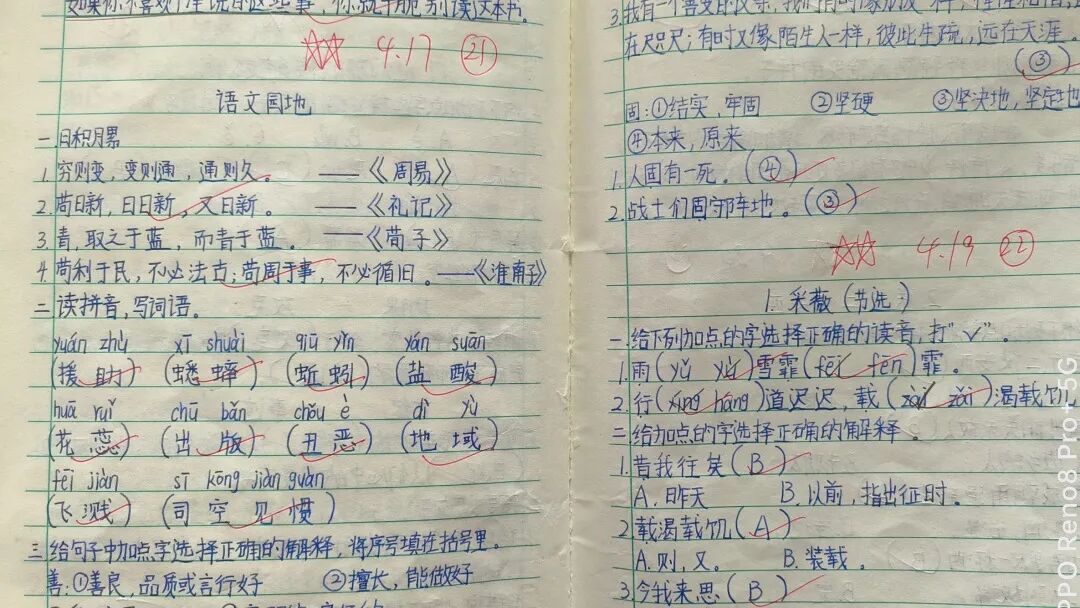 如果你不喜欢 这些事，你就干脆别读这本书。
4.17 21
语文园地
一.日积月累
1.穷则变，变则通，通则久。——《周易》
2.苟日新，日日新，又日新。——《礼记》
3.青，取之于蓝，而青于蓝。——《荀子》
4.苟利于民，不必法古；苟周于事，不必循旧。——《淮南子》
二.读拼音，写词语。
yuán zhù xī shuài qiū yǐn yán suān
(援助) (蟋蟀) (蚯蚓) (盐酸)
huā ruǐ chū bǎn chǒu è dì yù
(花蕊) (出版) (丑恶) (地域)
fēi jiàn sī kōng jiàn guàn
(飞溅) (司空见惯)
三.给句子中加点字选择正确的解释，将序号填在括号里。
善：①善良，品质或言行好 ②擅长，能做好
3.我有一个 的父亲，我们有时像朋友一样，
在咫尺；有时又像陌生人一样，彼此生疏，远在天涯。
(③)
固：①结实，牢固 ②坚硬 ③坚决地，坚定地
④本来，原来
1.人固有一死。(④)
2.战士们固守阵地。(③)
4.19 22
1.采薇(节选)
一.给下列加点的字选择正确的读音，打"√"。
1.雨(yǔ yù)雪霏(fēi fēn)霏。
2.行(xíng háng)道迟迟，载(zài zǎi)渴载饥
二.给加点的字选择正确的解释。
1.昔我往矣(B)
A.昨天 B.以前，指出征时。
2.载渴载饥(A)
A.则，又。 B.装载。
3.今我来思(B)
OPPO Reno8 Pro+ 5G